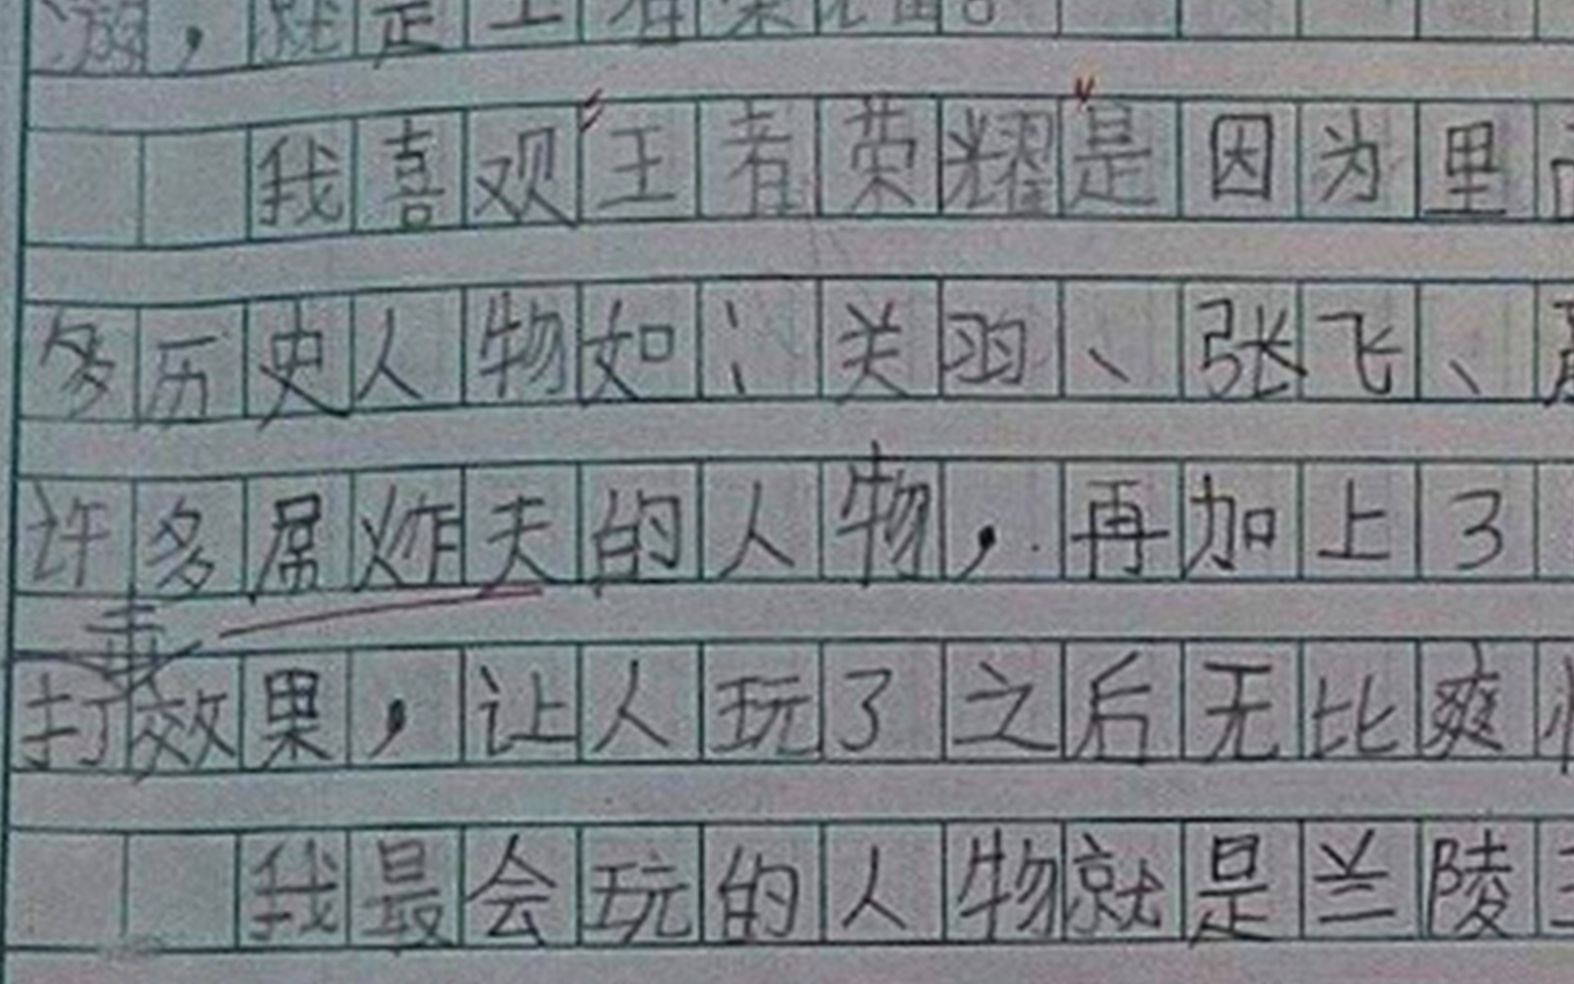 游，就是王者荣耀。
我喜观"王者荣耀"是因为里
多历史人物如：关羽、张飞、
许多屌炸天的人物，再加上了
打击效果，让人玩了之后无比爽
我最会玩的人物就是兰陵王